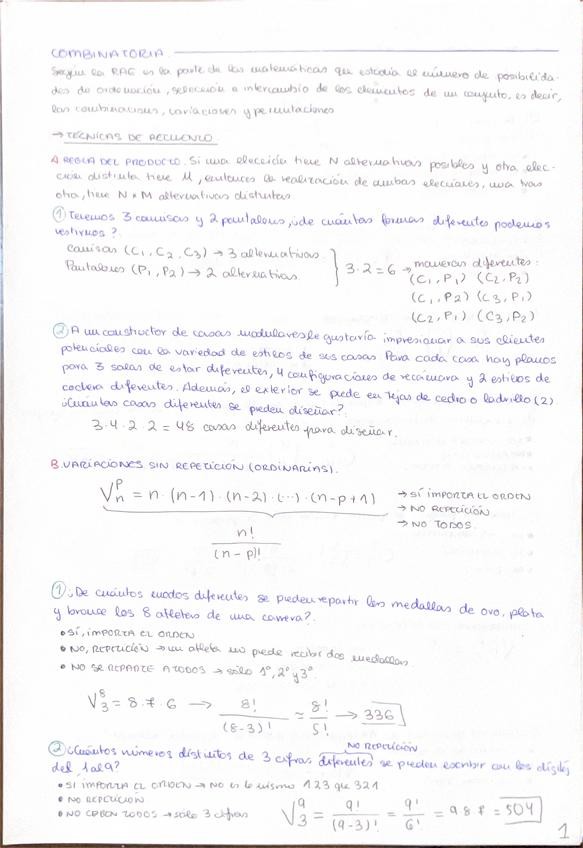 COMBINATORIA
Según la RAE es la parte de las matemáticas que estudia el número de posibilida-
des de ordenación, selección e intercambio de los elementos de un conjunto, es decir,
las combinaciones, variaciones y permutaciones
→ TÉCNICAS DE RECUENTO
A REGLA DEL PRODUCTO. Si una elección tiene N alternativas posibles y otra elec-
ción distinta tiene M, entonces la realización de ambas elecciones, una tras
otra, tiene N × M alternativas distintas
① Tenemos 3 camisas y 2 pantalones, ¿de cuántas formas diferentes podemos
vestirnos?
Camisas (C1, C2, C3) → 3 alternativas
Pantalones (P1, P2) → 2 alternativas } 3·2 = 6 → maneras diferentes:
(C1, P1) (C2, P2)
(C1, P2) (C3, P1)
(C2, P1) (C3, P2)
② A un constructor de casas modulares le gustaría impresionar a sus clientes
potenciales con la variedad de estilos de sus casas. Para cada casa hay planos
para 3 salas de estar diferentes, 4 configuraciones de recámara y 2 estilos de
cochera diferentes. Además, el exterior se puede en tejas de cedro o ladrillo (2).
¿Cuántas casas diferentes se pueden diseñar?
3·4·2·2 = 48 casas diferentes para diseñar.
B. VARIACIONES SIN REPETICIÓN (ORDINARIAS).
V_n^p = n·(n-1)·(n-2)·(...)·(n-p+1) → SÍ IMPORTA EL ORDEN
→ NO REPETICIÓN
→ NO TODOS
n!
(n-p)!
① ¿De cuántos modos diferentes se pueden repartir las medallas de oro, plata
y bronce los 8 atletas de una carrera?.
• SÍ, IMPORTA EL ORDEN
• NO, REPETICIÓN → un atleta no puede recibir dos medallas.
• NO SE REPARTE A TODOS → sólo 1º, 2º y 3º
V_3^8 = 8·7·6 → 8!/(8-3)! = 8!/5! → 336
NO REPETICIÓN
② ¿Cuántos números distintos de 3 cifras diferentes se pueden escribir con los dígitos
del 1 al 9?
• SI IMPORTA EL ORDEN → NO es lo mismo 123 que 321
• NO REPETICIÓN
• NO CABEN TODOS → sólo 3 cifras
V_3^9 = 9!/(9-3)! = 9!/6! = 9·8·7 = 504
1